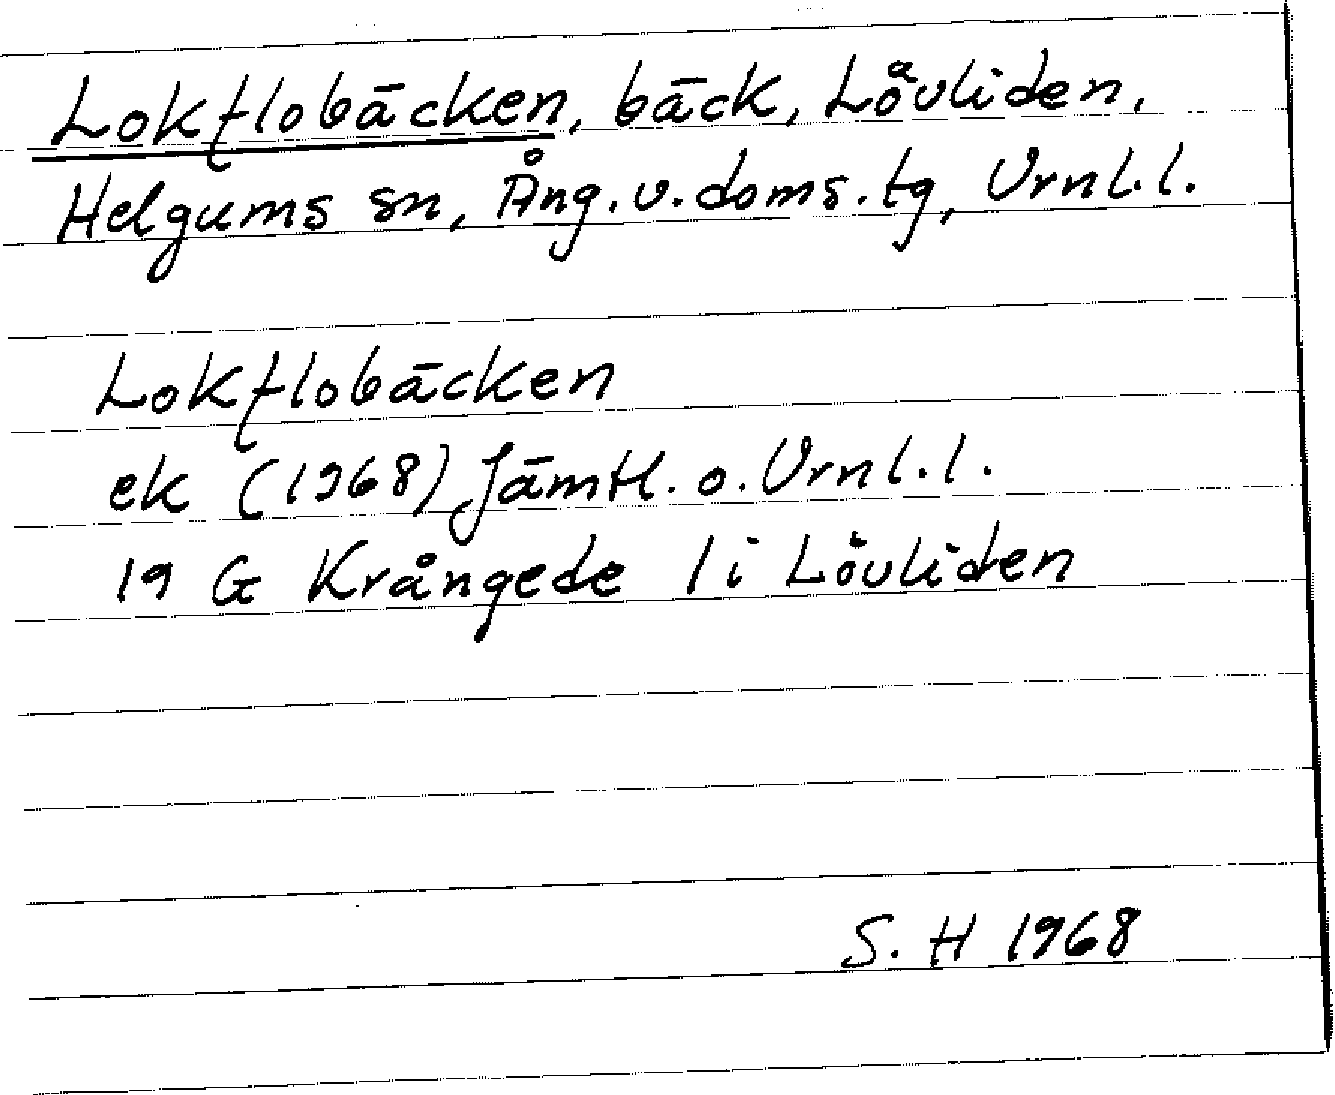 Lokflobäcken, bäck, Lövliden,
Helgums sn, Ång.v.doms.tg, Vrnl.l.
Lokflobäcken
ek (1968) Jämtl. o. Vrnl.l.
19 G Krångede 1i Lövliden
S. H 1968